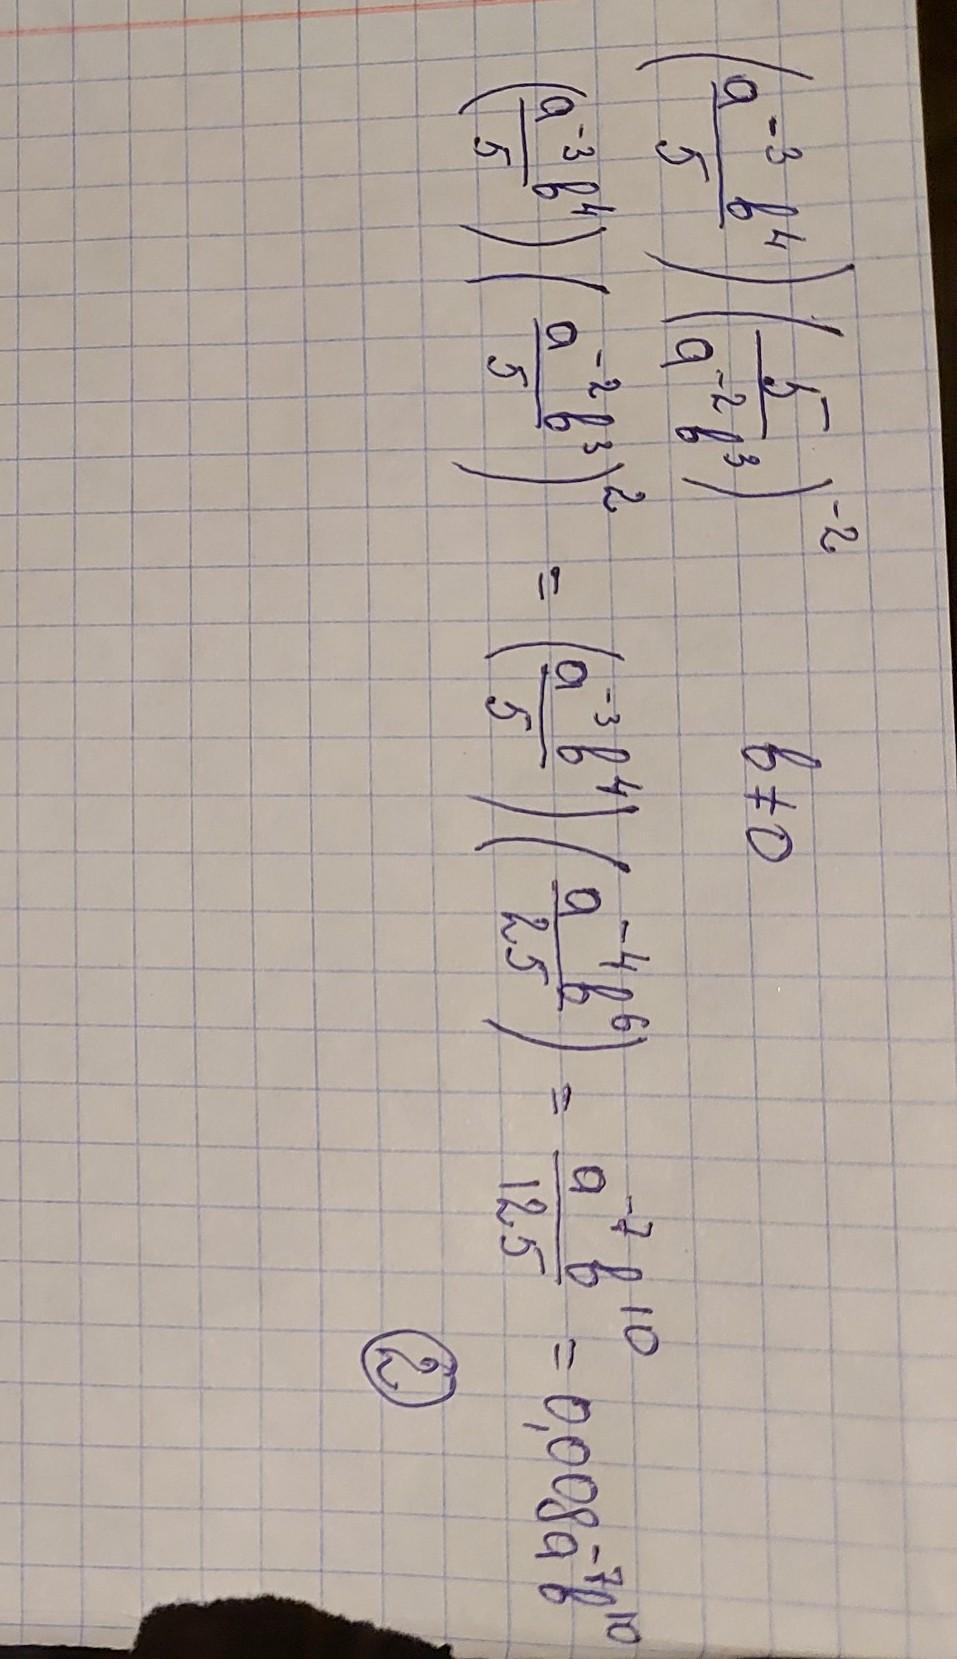 (a⁻³b⁴/5)(5/a⁻²b³)⁻² b≠0
(a⁻³b⁴/5)(a⁻²b³/5)² = (a⁻³b⁴/5)(a⁻⁴b⁶/25) = a⁻⁷b¹⁰/125 = 0,008a⁻⁷b¹⁰
2